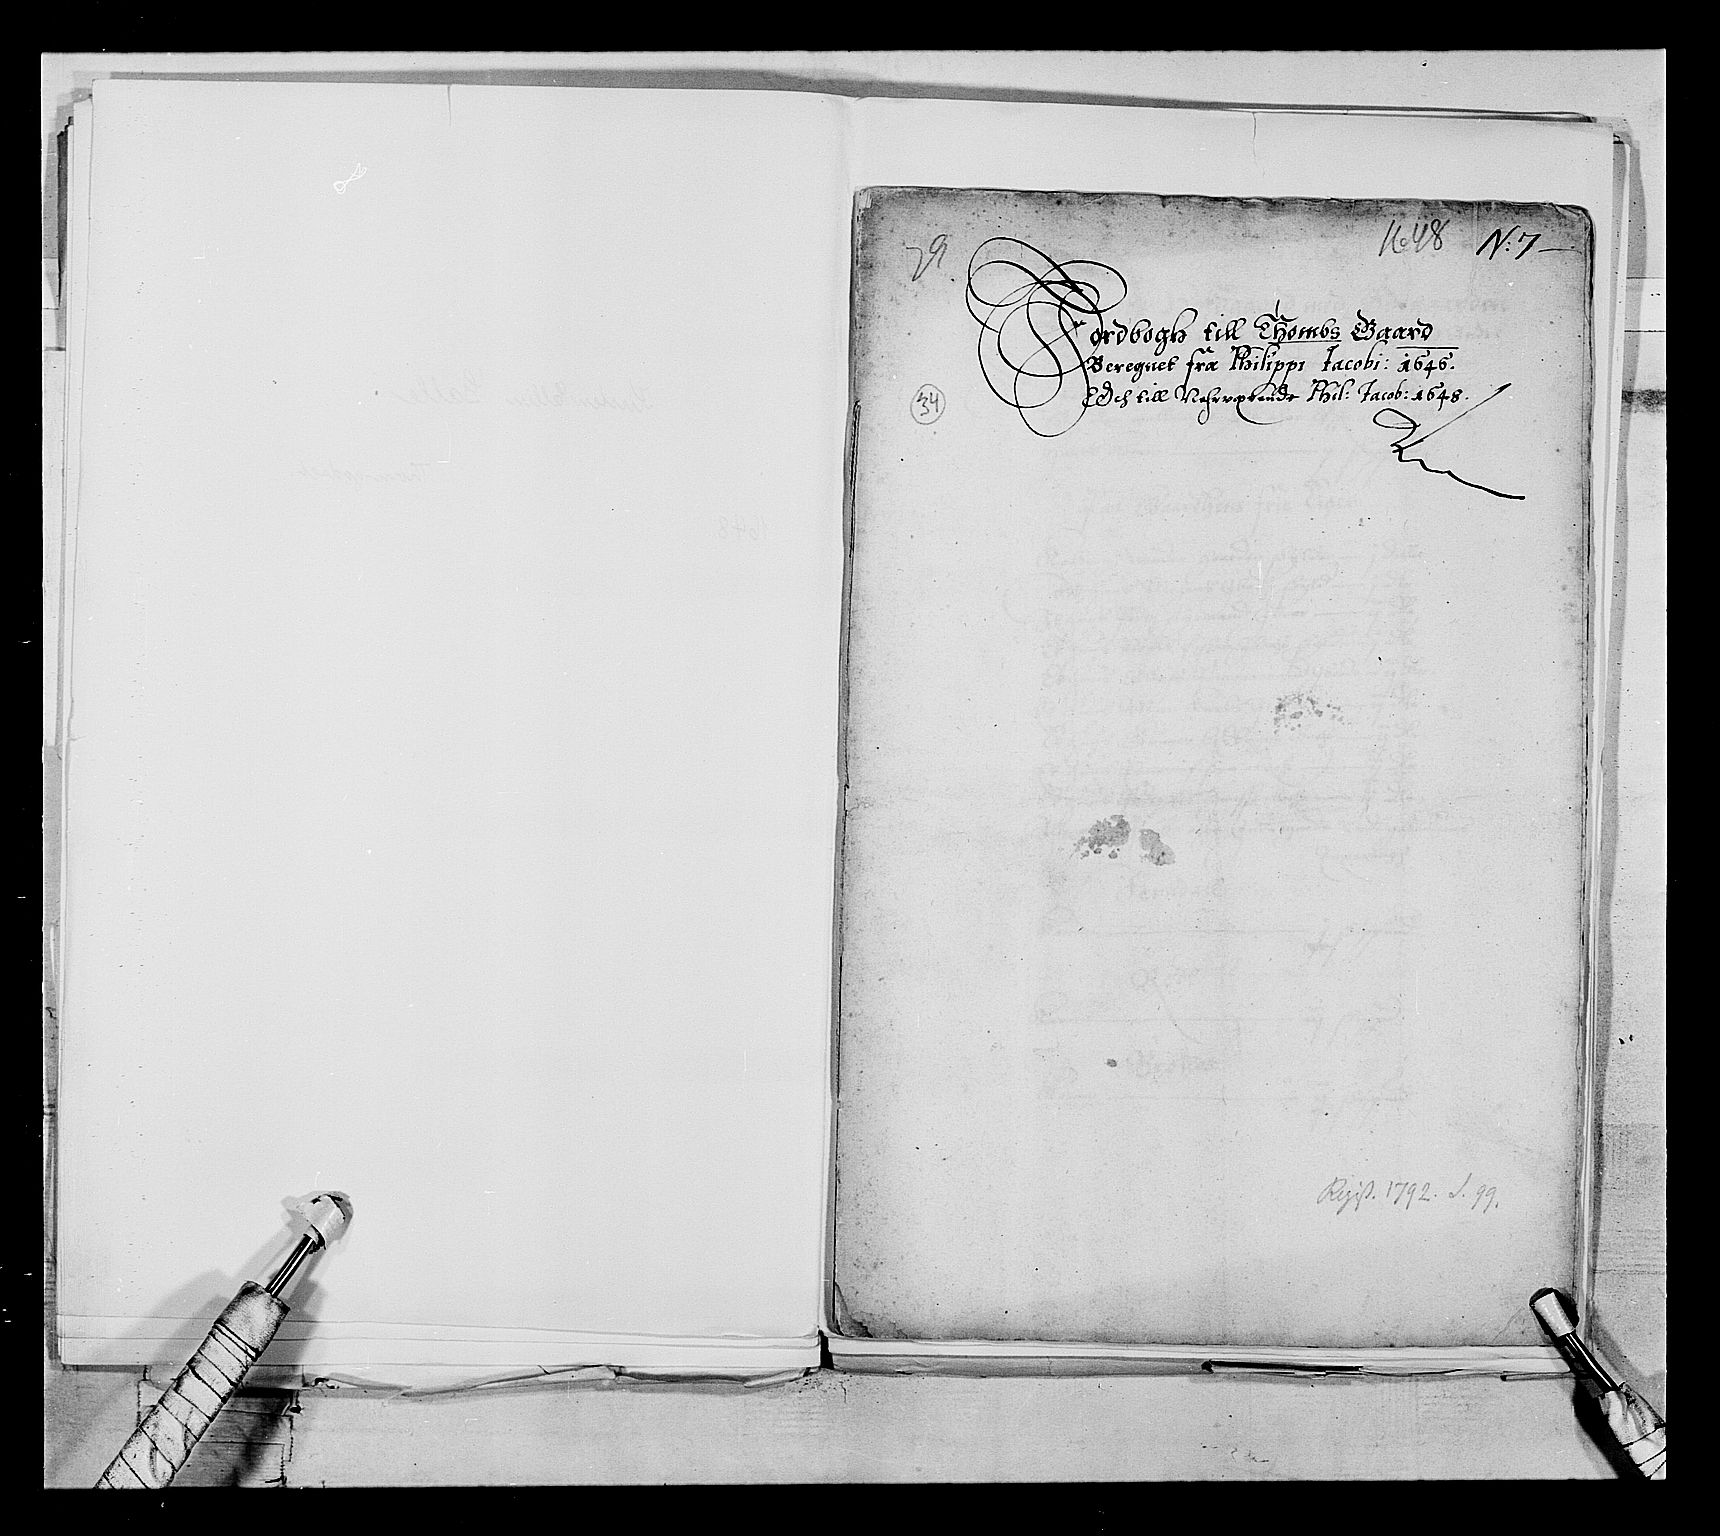 79.
1648 N: 7
Jordbogh till Thombs Gaard
Beregnet fra Philippi Jacobi: 1646.
Och till Phil: Jacob: 1648.
34
Regist. 1792. S. 99.